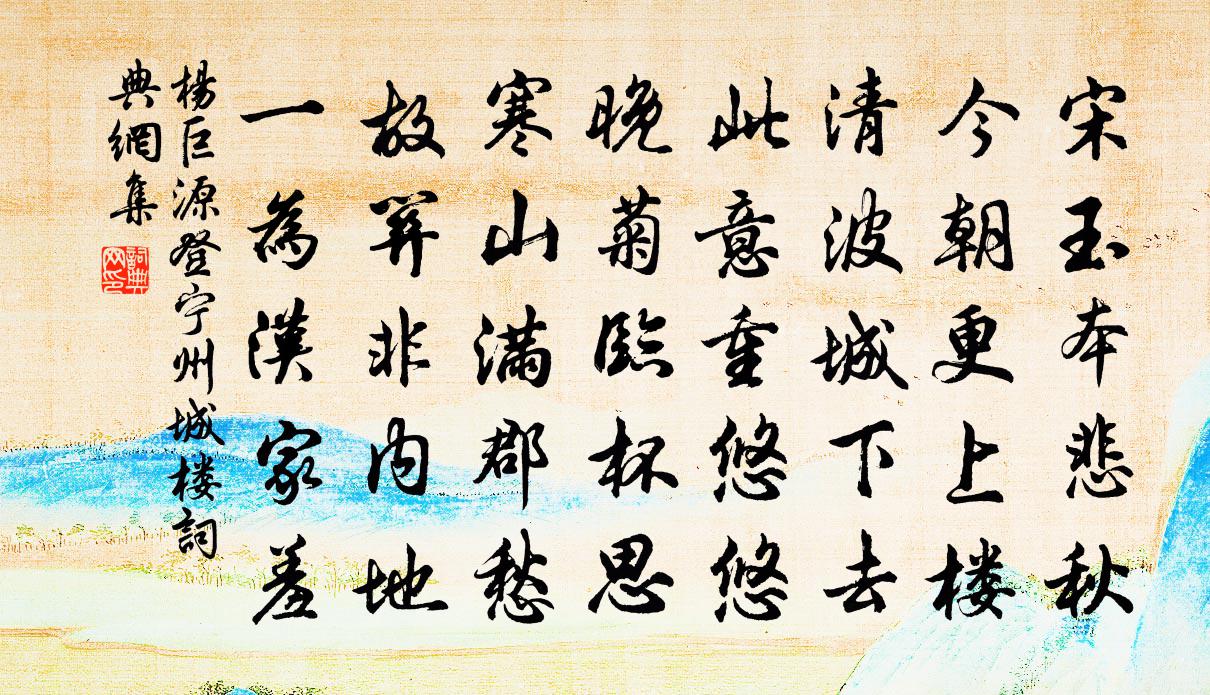 宋玉本悲秋
今朝更上楼
清波城下去
此意重悠悠
晚菊臨杯思
寒山滿郡愁
故關非内地
一為漢家羞
楊巨源登宁州城楼詞
典網集
詞典网印